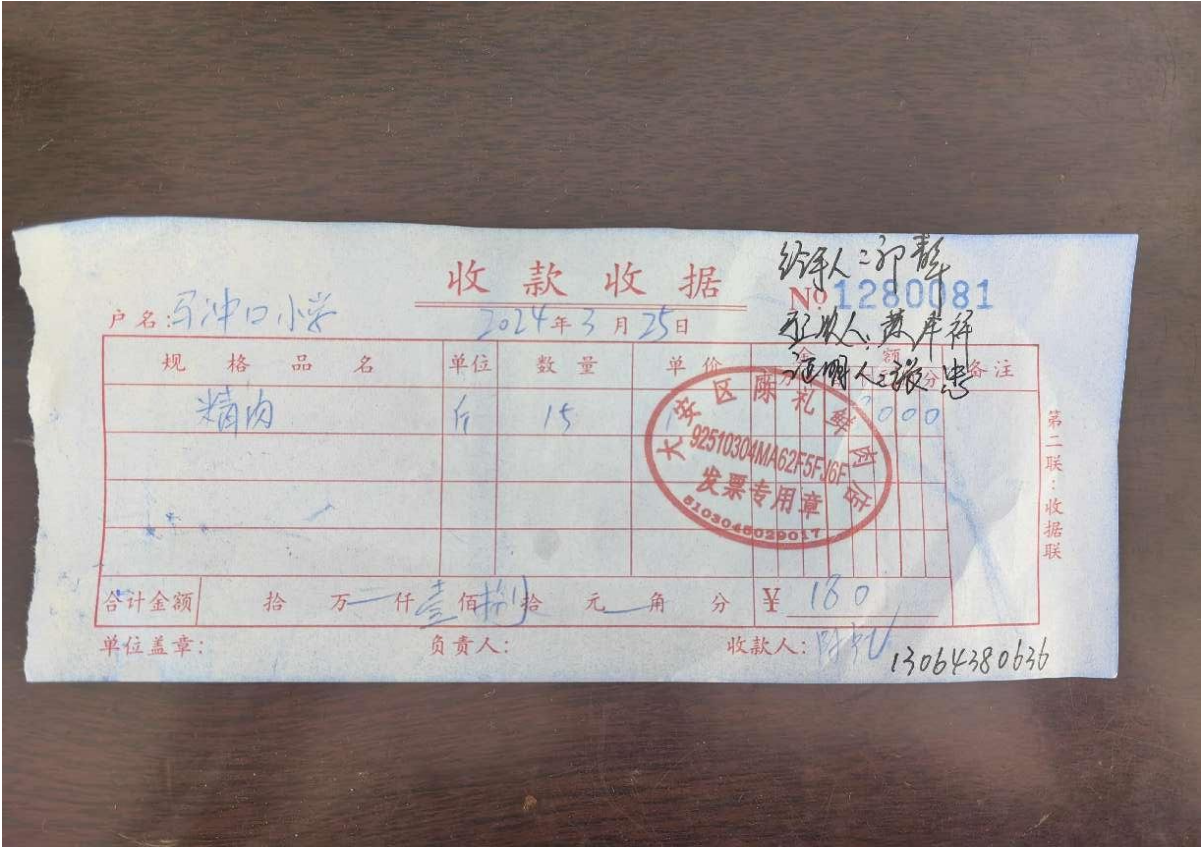 收款收据
经手人:
No 1280081
户名:马冲口小学
2024年3月25日
验收人:
证明人:张忠
规格品名 单位 数量 单价 金额 备注
万 分
精肉 斤 15 000
大安区陈礼鲜肉店
92510304MA62F5FJ6F
发票专用章
5103045029017
第二联:收据联
合计金额 拾 万 仟 壹佰 捌拾 元 角 分 ¥ 180
单位盖章: 负责人: 收款人:陈礼
13064380636